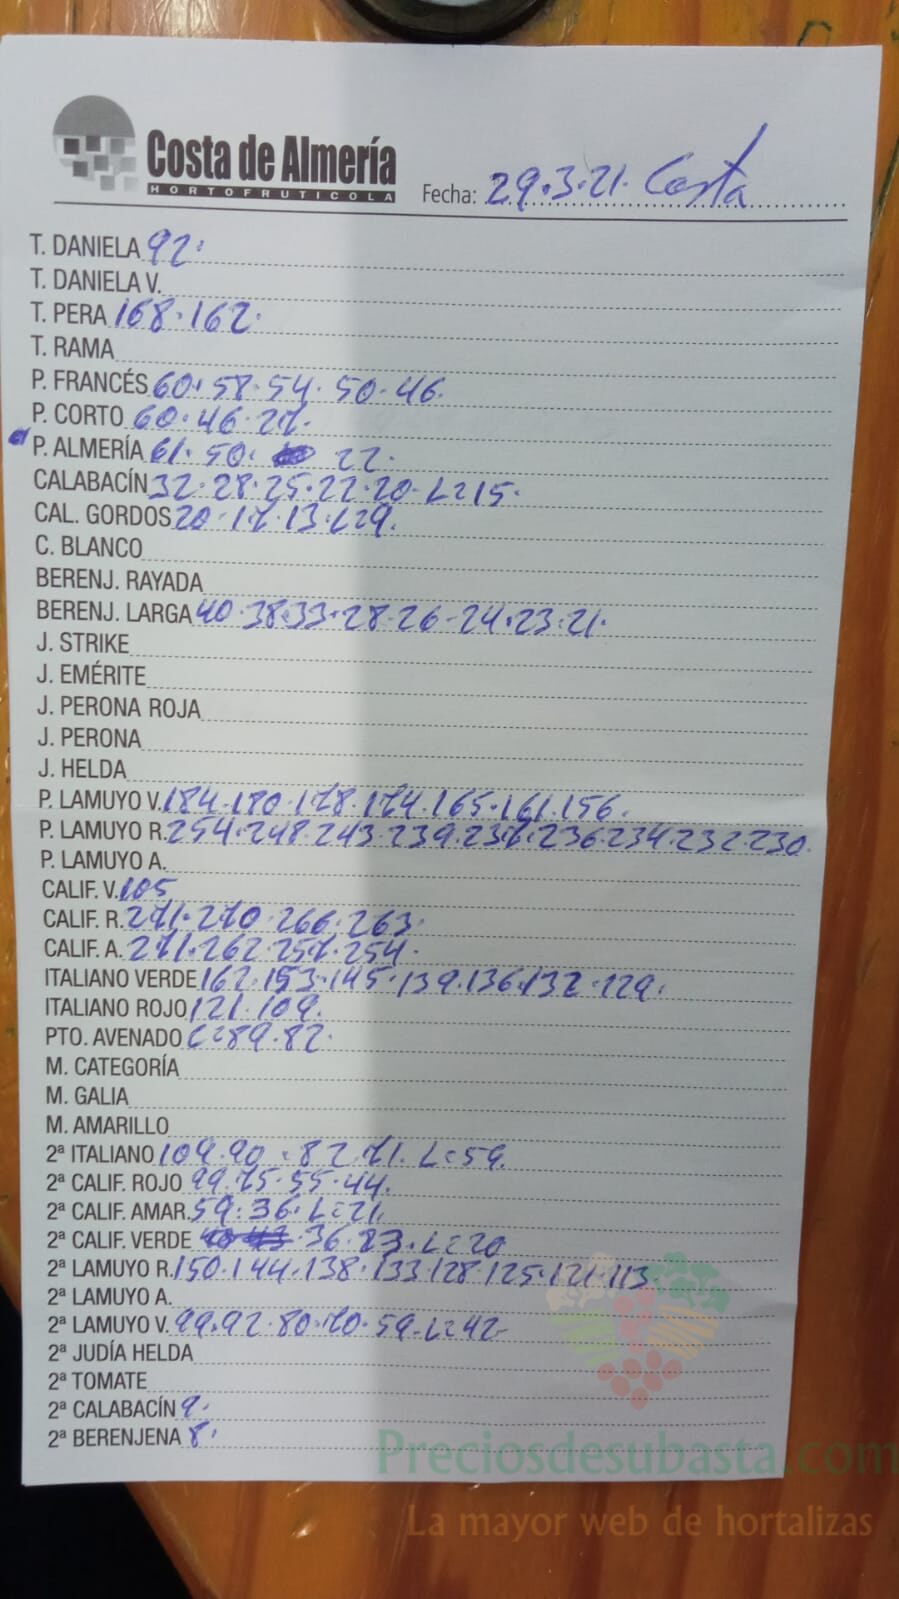 Costa de Almería
HORTOFRUTICOLA
Fecha: 29.3.21. Costa
T. DANIELA 92.
T. DANIELA V.
T. PERA 168.162.
T. RAMA
P. FRANCÉS 60.58.54.50.46.
P. CORTO 60.46.27.
P. ALMERÍA 61.50. 22.
CALABACÍN 32.28.25.22.20.L=15.
CAL. GORDOS 20.17.13.L=9.
C. BLANCO
BERENJ. RAYADA
BERENJ. LARGA 40.38.33.28.26-24.23.21.
J. STRIKE
J. EMÉRITE
J. PERONA ROJA
J. PERONA
J. HELDA
P. LAMUYO V. 184.180.178.174.165.161.156.
P. LAMUYO R. 254.248.243.239.237.236.234.232.230.
P. LAMUYO A.
CALIF. V. 105
CALIF. R. 271.270.266.263.
CALIF. A. 271.262.257.254.
ITALIANO VERDE 162.153.145.139.136.132.129.
ITALIANO ROJO 121.109.
PTO. AVENADO C=89.82.
M. CATEGORÍA
M. GALIA
M. AMARILLO
2ª ITALIANO 109.90.82.71.L=59.
2ª CALIF. ROJO 99.75.55.44.
2ª CALIF. AMAR. 59.36.L=21.
2ª CALIF. VERDE 36.23.L=20
2ª LAMUYO R. 150.144.138.133.128.125.121.113.
2ª LAMUYO A.
2ª LAMUYO V. 99.92.80.70.59.L=42-
2ª JUDÍA HELDA
2ª TOMATE
2ª CALABACÍN 9.
2ª BERENJENA 8.
Preciosdesubasta.com
La mayor web de hortalizas